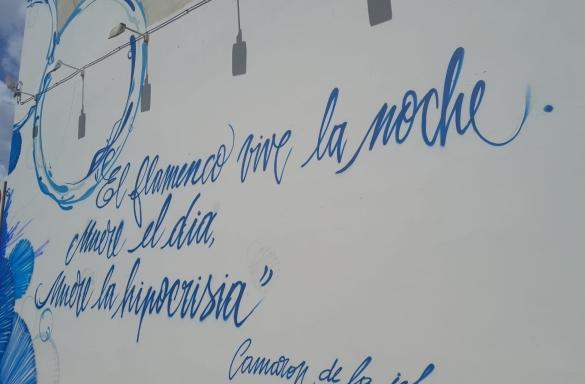 "El flamenco vive la noche.
Muere el dia,
Muere la hipocrisia"
Camaron de la isl